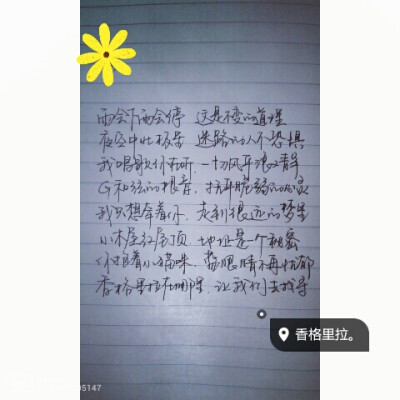 雨会下雨会停 这是不变的道理
夜空中北极星 迷路的人不恐惧
我唱歌你在听 一切风平浪又静
G和弦的根音,抚平脆弱的心灵
我只想牵着你 走到很远的梦里
小木屋红屋顶 地址是一个秘密
你跟着小猫咪 蓝眼睛不再忧郁
香格里拉在哪里 让我们去找寻
香格里拉。
5147